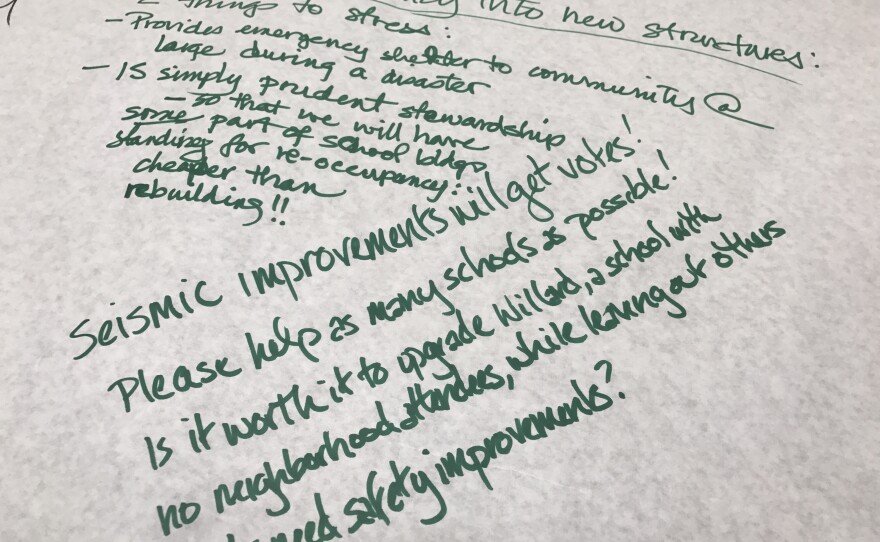 into new structures:
2 things to stress:
- Provides emergency shelter to community @
large during a disaster
- IS simply prudent stewardship
- so that we will have
some part of school bldgs
standing for re-occupancy:
cheaper than
rebuilding!!
Seismic improvements will get votes!
Please help as many schools as possible!
Is it worth it to upgrade Willard, a school with
no neighborhood attendees, while leaving out others
need safety improvements?